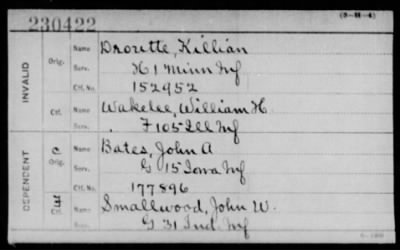 (3-M-4)
230422
INVALID
Orig. Name Drovette, Killian
Serv. H 1 Minn Inf
Ctf. No. 152952
Ctf. Name Wakelee, William H.
Serv. F 105 Ill Inf
DEPENDENT
C Orig. Name Bates, John A
Serv. G 15 Iowa Inf
Ctf. No. 177896
Ctf. Name Smallwood, John W.
Serv. G 31 Ind. Inf